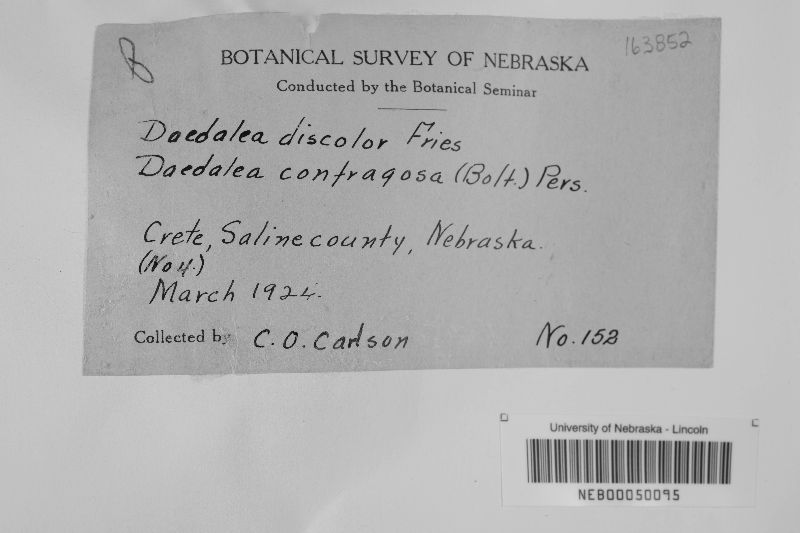 163852
BOTANICAL SURVEY OF NEBRASKA
Conducted by the Botanical Seminar
Daedalea discolor Fries
Daedalea confragosa (Bolt.) Pers.
Crete, Saline county, Nebraska.
(No 4.)
March 1924.
Collected by C. O. Carlson No. 152
University of Nebraska - Lincoln
NEB00050095